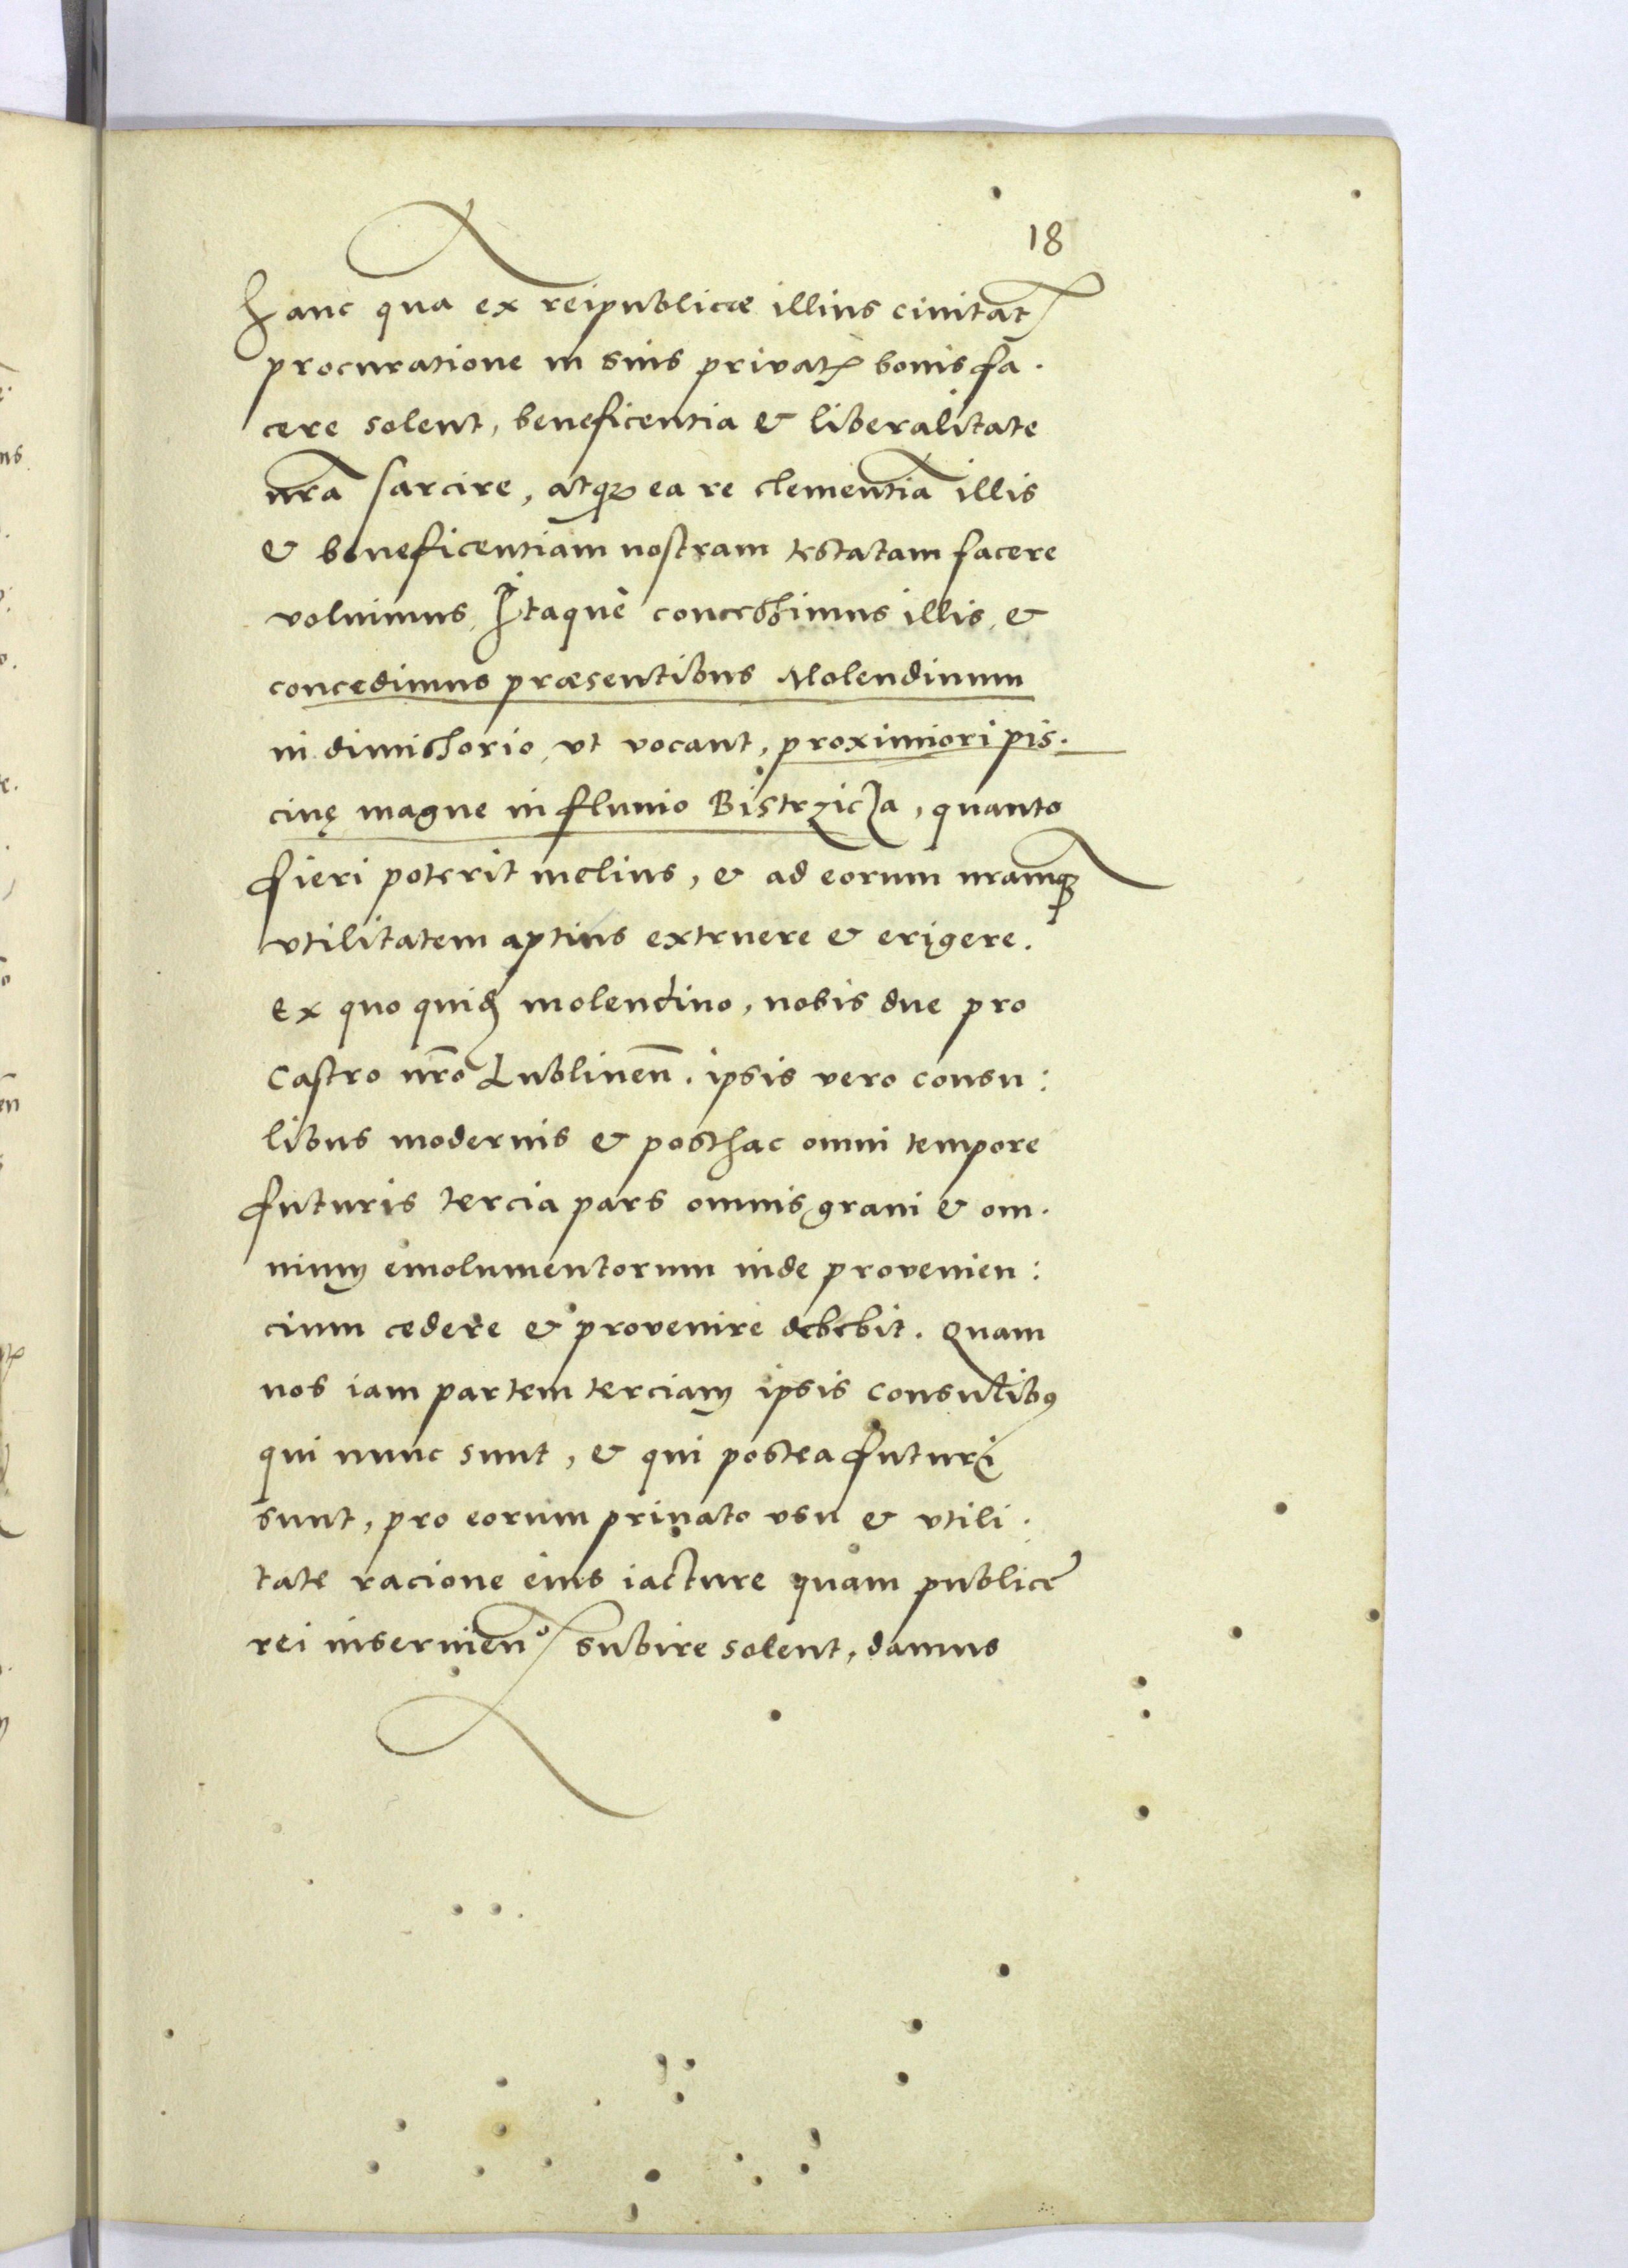 18
hanc qua ex reipublicæ illius ciuitatꝭ
procuratione in suis privatꝭ bonis fa.
cere solent, beneficentia & liberalitate
nr̃a sarcire, atqꝫ ea re clementiã illis
& beneficentiam nostram testatam facere
voluimus, Itaque concessimus illis, &
concedimus præsentibus Molendinum
in dimissorio, vt vocant, proximiori pis.
cinę magne in fluuio Bistrzicza, quanto
fieri poterit melius, & ad eorum nr̃amqꝫ
vtilitatem aptius extruere & erigere.
Ex quo quidẽ molendino, nobis due pro
Castro nr̃o Lublineñ. ipsis vero consu:
libus modernis & posthac omni tempore
futuris tercia pars omnis grani & om.
nium emolumentorum inde provenien:
cium cedere & provenire debebit. Quam
nos iam partem terciam ipsis consulibꝰ
qui nunc sunt, & qui postea futuri
sunt, pro eorum priuato vsu & vtili.
tate racione eius iacture quam publice
rei inseruieñ subire solent, damus